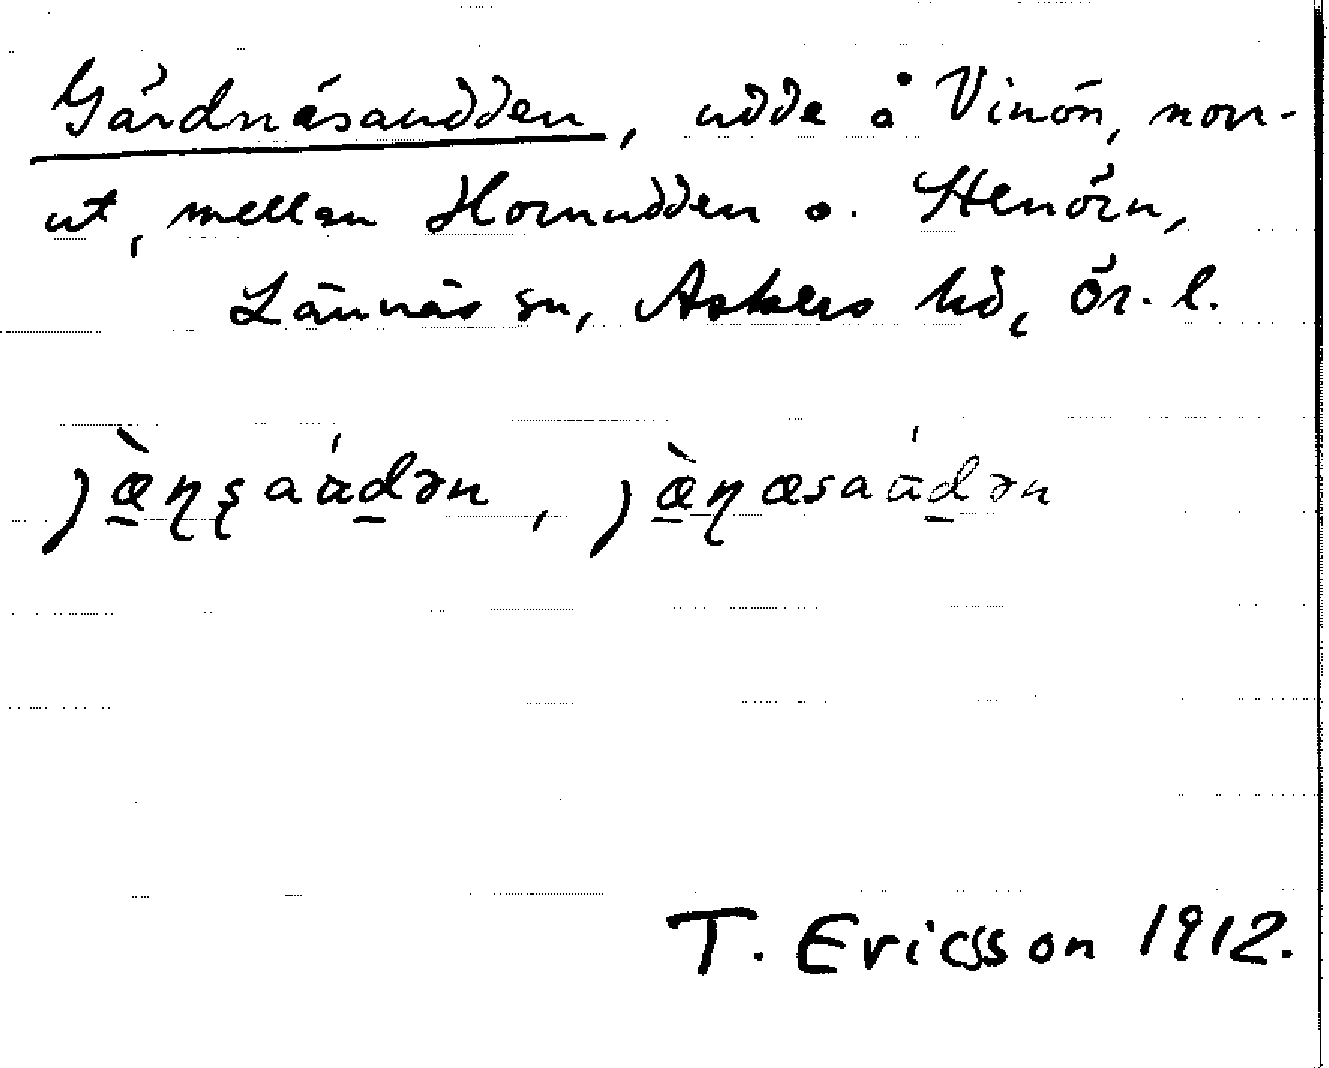 Gärdnäsaudden, udde å Vinön, norr-
ut, mellan Hornudden o. Stenörn,
Lännäs sn, Askers hd, Ör. l.
jæ̠̀ɳʂaád̠ən, jæ̠̀ɳæsaád̠ən
T. Ericsson 1912.